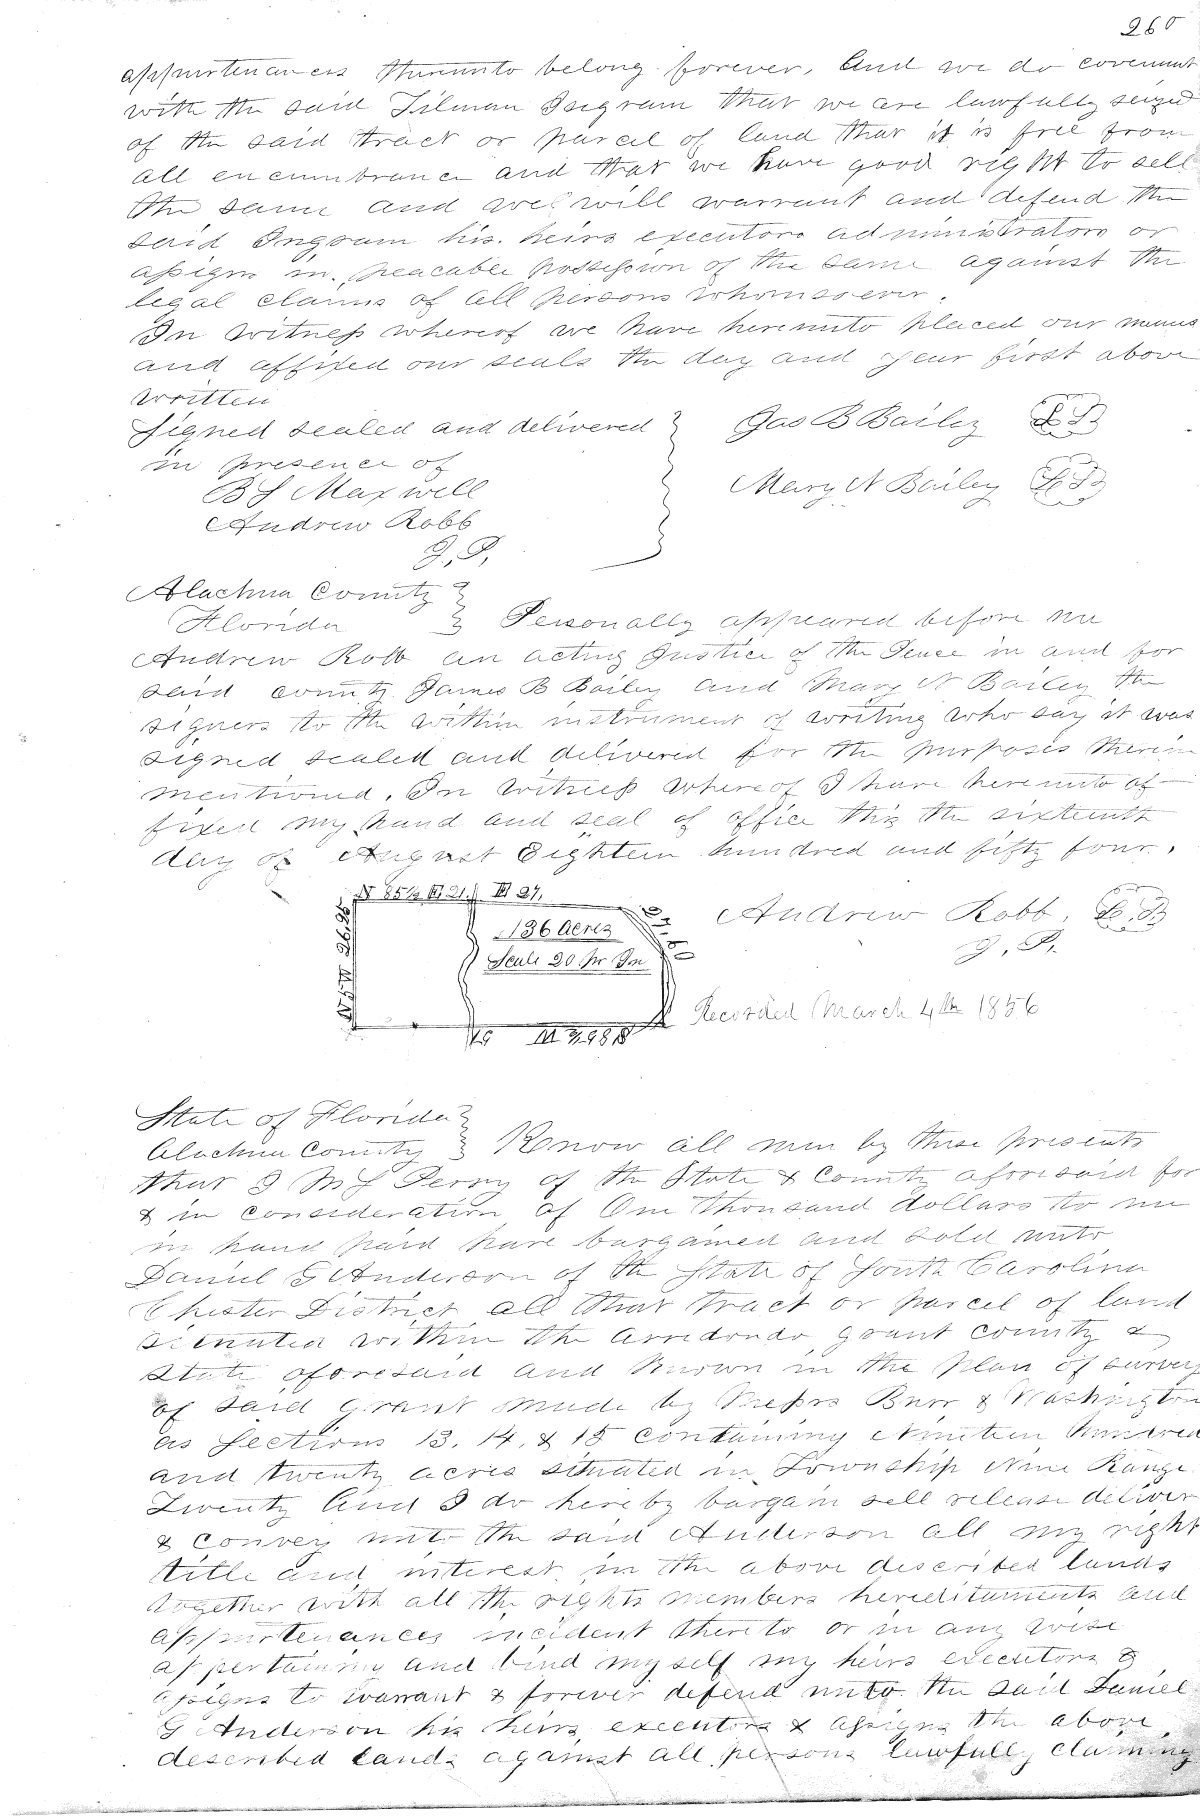 260
appurtenances thereunto belong forever. And we do covenant
with the said Tilman Ingram that we are lawfully seized
of the said tract or parcel of land that it is free from
all encumbrance and that we have good right to sell
the same and we will warrant and defend the
said Ingram his heirs executors administrators or
assigns in peacable possession of the same against the
legal claims of all persons whomsoever.
In Witness whereof we have hereunto placed our names
and affixed our seals the day and year first above
written
Signed sealed and delivered
in presence of
B S Maxwell
Andrew Robb
J. P.
Jas B Bailey L S
Mary N Bailey L S
Alachua County
Florida Personally appeared before me
Andrew Robb an acting Justice of the Peace in and for
said county James B Bailey and Mary N Bailey the
signers to the within instrument of writing who say it was
signed sealed and delivered for the purposes therein
mentioned. In Witness whereof I have hereunto af-
fixed my hand and seal of office this the sixteenth
day of August Eighteen hundred and fifty four.
Andrew Robb. L. S
J. P.
N 85½ 21. 27.
136 Acres
Scale 20 pr In
Recorded March 4th 1856
State of Florida
Alachua County Know all men by these presents
that I M S Perry of the State & County aforesaid for
& in consideration of One thousand dollars to me
in hand paid have bargained and sold unto
Daniel G Anderson of the State of South Carolina
Chester District all that tract or parcel of land
situated within the Arredondo grant county &
State aforesaid and known in the plan of survey
of said grant made by Messrs Burr & Washington
as Sections 13. 14. & 15 containing Nineteen hundred
and twenty acres situated in Township Nine Range
Twenty And I do hereby bargain sell release deliver
& convey unto the said Anderson all my right
title and interest in the above described lands
together with all the rights members hereditaments and
appurtenances incident thereto or in any wise
appertaining and bind myself my heirs executors &
assigns to warrant & forever defend unto the said Daniel
G Anderson his heirs executors & assigns the above
described lands against all persons lawfully claiming